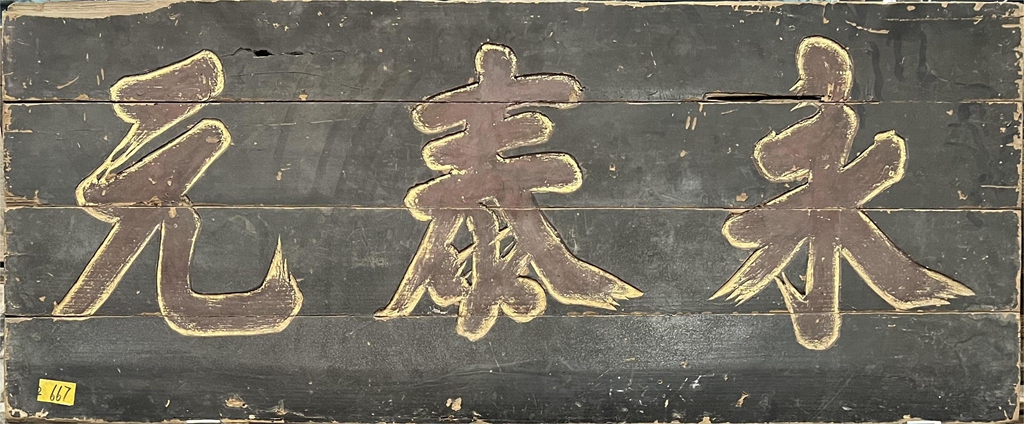 永泰元
667